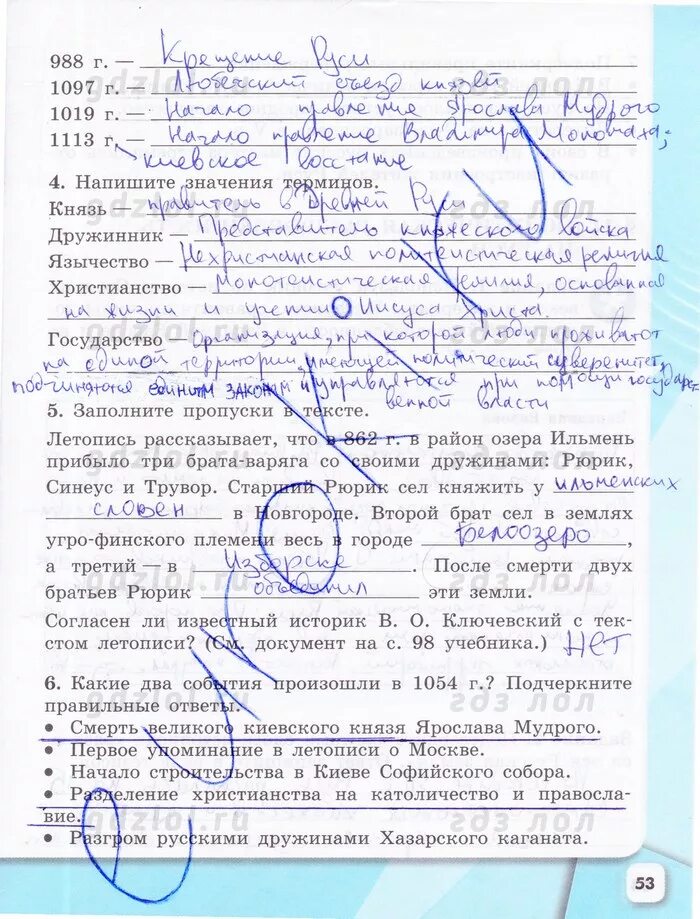 988 г. — Крещение Руси
1097 г. — Любечский съезд князей
1019 г. — Начало правление Ярослава Мудрого
1113 г. — Начало правление Владимира Мономаха;
киевское восстание
4. Напишите значения терминов.
Князь — правитель в Древней Руси
Дружинник — Представитель княжеского войска
Язычество — Нехристианская политеистическая религия
Христианство — Монотеистическая религия, основанная
на жизни и учении Иисуса Христа.
Государство — Организация, при которой люди проживают
на единой территории, имеющей политический суверенитет,
подчиняются единым законам и управляются при помощи государс-
венной власти
5. Заполните пропуски в тексте.
Летопись рассказывает, что в 862 г. в район озера Ильмень
прибыло три брата-варяга со своими дружинами: Рюрик,
Синеус и Трувор. Старший Рюрик сел княжить у ильменских
словен в Новгороде. Второй брат сел в землях
угро-финского племени весь в городе Белоозеро,
а третий — в Изборске. После смерти двух
братьев Рюрик объединил эти земли.
Согласен ли известный историк В. О. Ключевский с тек-
стом летописи? (См. документ на с. 98 учебника.) НЕТ
6. Какие два события произошли в 1054 г.? Подчеркните
правильные ответы.
• Смерть великого киевского князя Ярослава Мудрого.
• Первое упоминание в летописи о Москве.
• Начало строительства в Киеве Софийского собора.
• Разделение христианства на католичество и правосла-
вие.
• Разгром русскими дружинами Хазарского каганата.
53
gdzlol.ru
гдз лол